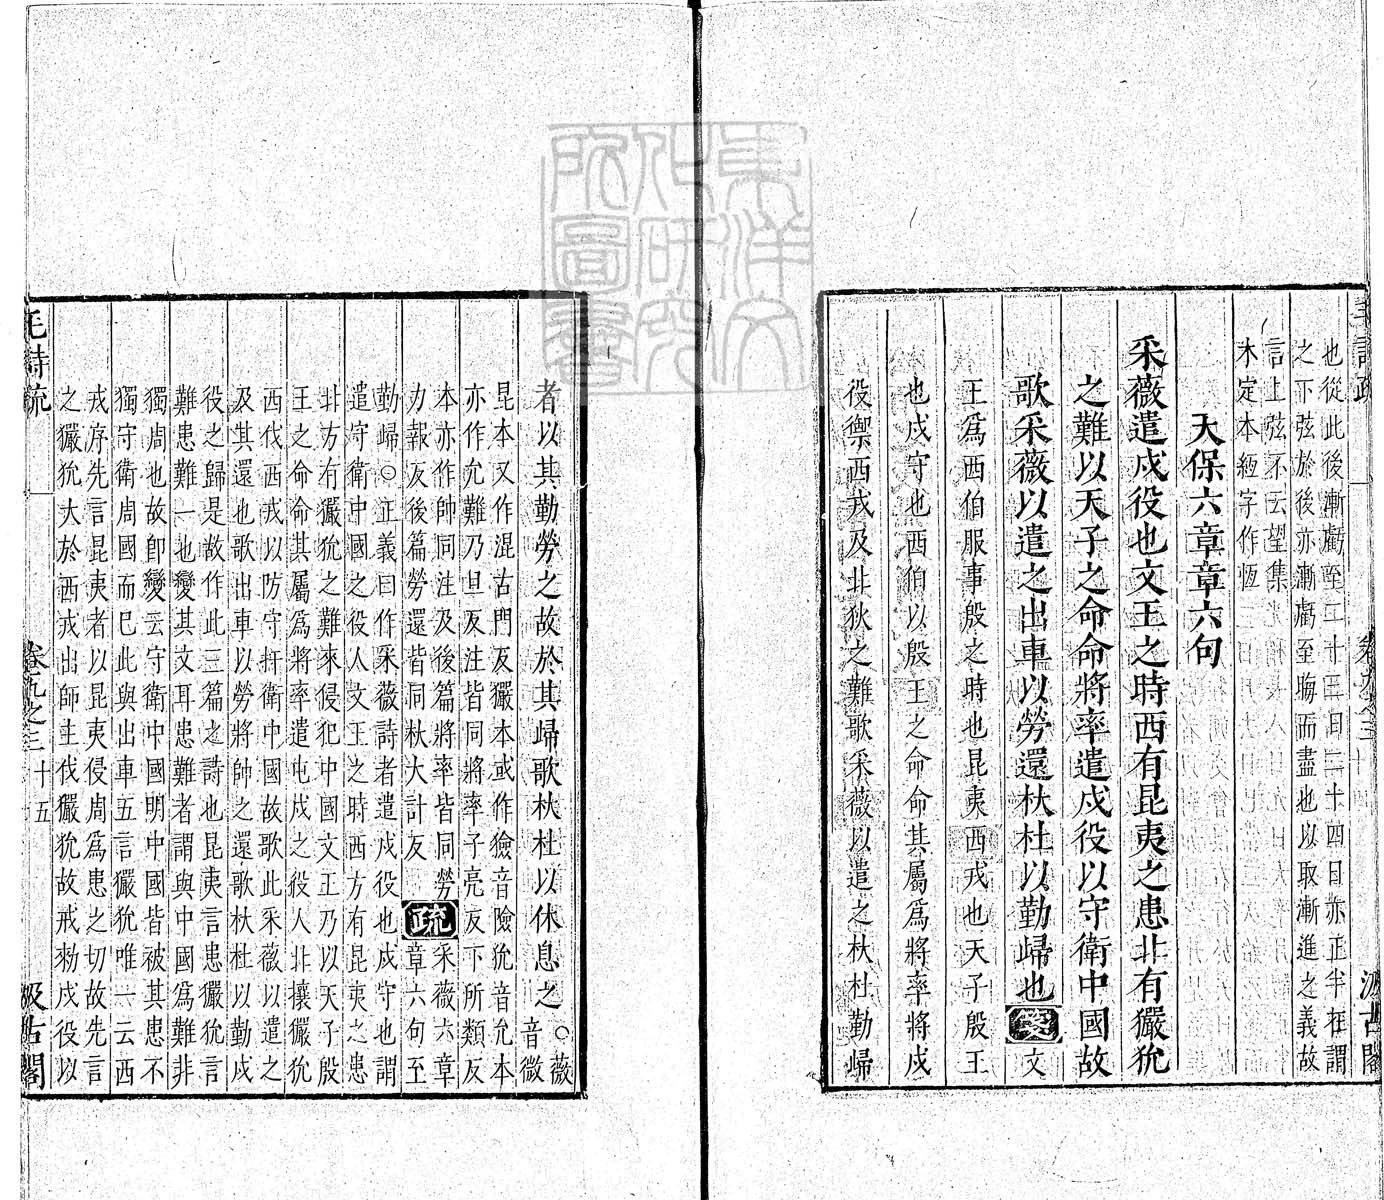 也從此後漸虧至二十三日二十四日亦正半在謂
之下弦於後亦漸虧至晦而盡也以取漸進之義故
言上弦不云望集
本定本絚字作恆
天保六章章六句
采薇遣戍役也文王之時西有昆夷之患北有玁狁
之難以天子之命命將率遣戍役以守衛中國故
歌采薇以遣之出車以勞還杕杜以勤歸也箋文
王爲西伯服事殷之時也昆夷西戎也天子殷王
也戍守也西伯以殷王之命命其屬爲將率將戍
役禦西戎及北狄之難歌采薇以遣之杕杜勤歸
者以其勤勞之故於其歸歌杕杜以休息之○薇
音微
昆本又作混古門反玁本或作獫音險狁音允本
亦作允難乃旦反注皆同將率子亮反下所類反
本亦作帥同注及後篇將率皆同勞
力報反後篇勞還皆同杕大計反疏采薇六章
章六句至
勤歸○正義曰作采薇詩者遣戍役也戍守也謂
遣守衛中國之役人文王之時西方有昆夷之患
北方有玁狁之難來侵犯中國文王乃以天子殷
王之命命其屬爲將率遣屯戍之役人北攘玁狁
西伐西戎以防守扞衛中國故歌此采薇以遣之
及其還也歌出車以勞將帥之還歌杕杜以勤戍
役之歸是故作此三篇之詩也昆夷言患玁狁言
難患難一也變其文耳患難者謂與中國爲難非
獨周也故卽變云守衛中國明中國皆被其患不
獨守衛周國而已此與出車五言玁狁唯一云西
戎序先言昆夷者以昆夷侵周爲患之切故先言
之玁狁大於西戎出師主伐玁狁故戒勑戍役以
毛詩疏 卷九之三 十五 汲古閣